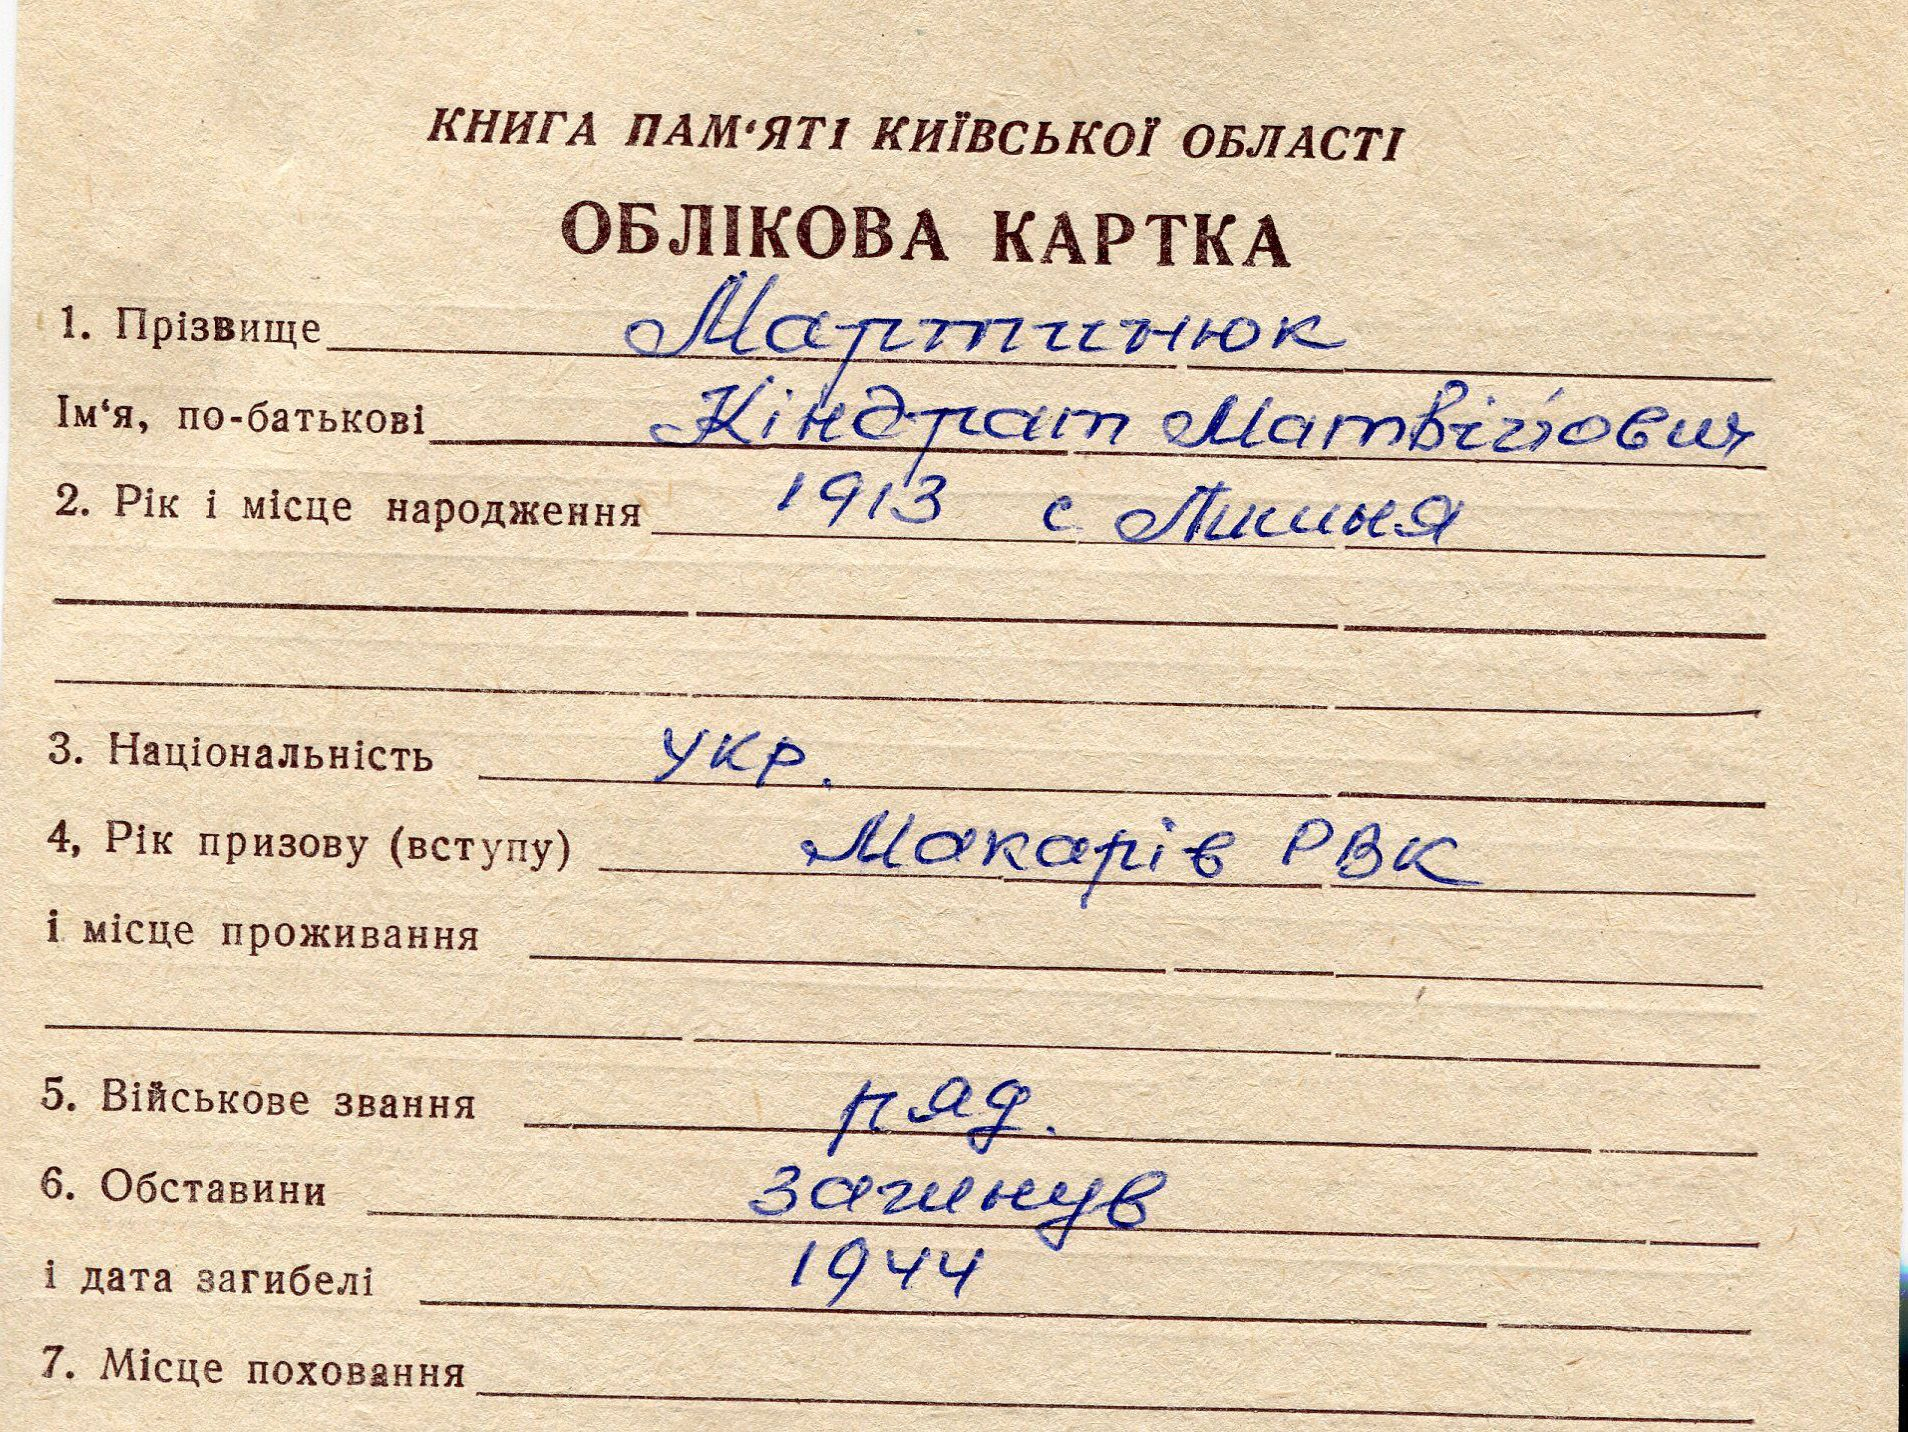 КНИГА ПАМ‘ЯТІ КИЇВСЬКОЇ ОБЛАСТІ
ОБЛІКОВА КАРТКА
1. Прізвище Мартинюк
Ім‘я, по-батькові Кіндрат Матвійович
2. Рік і місце народження 1913 с. Липня
3. Національність укр.
4, Рік призову (вступу) Макарів РВК
і місце проживання
5. Військове звання ряд.
6. Обставини загинув
і дата загибелі 1944
7. Місце поховання